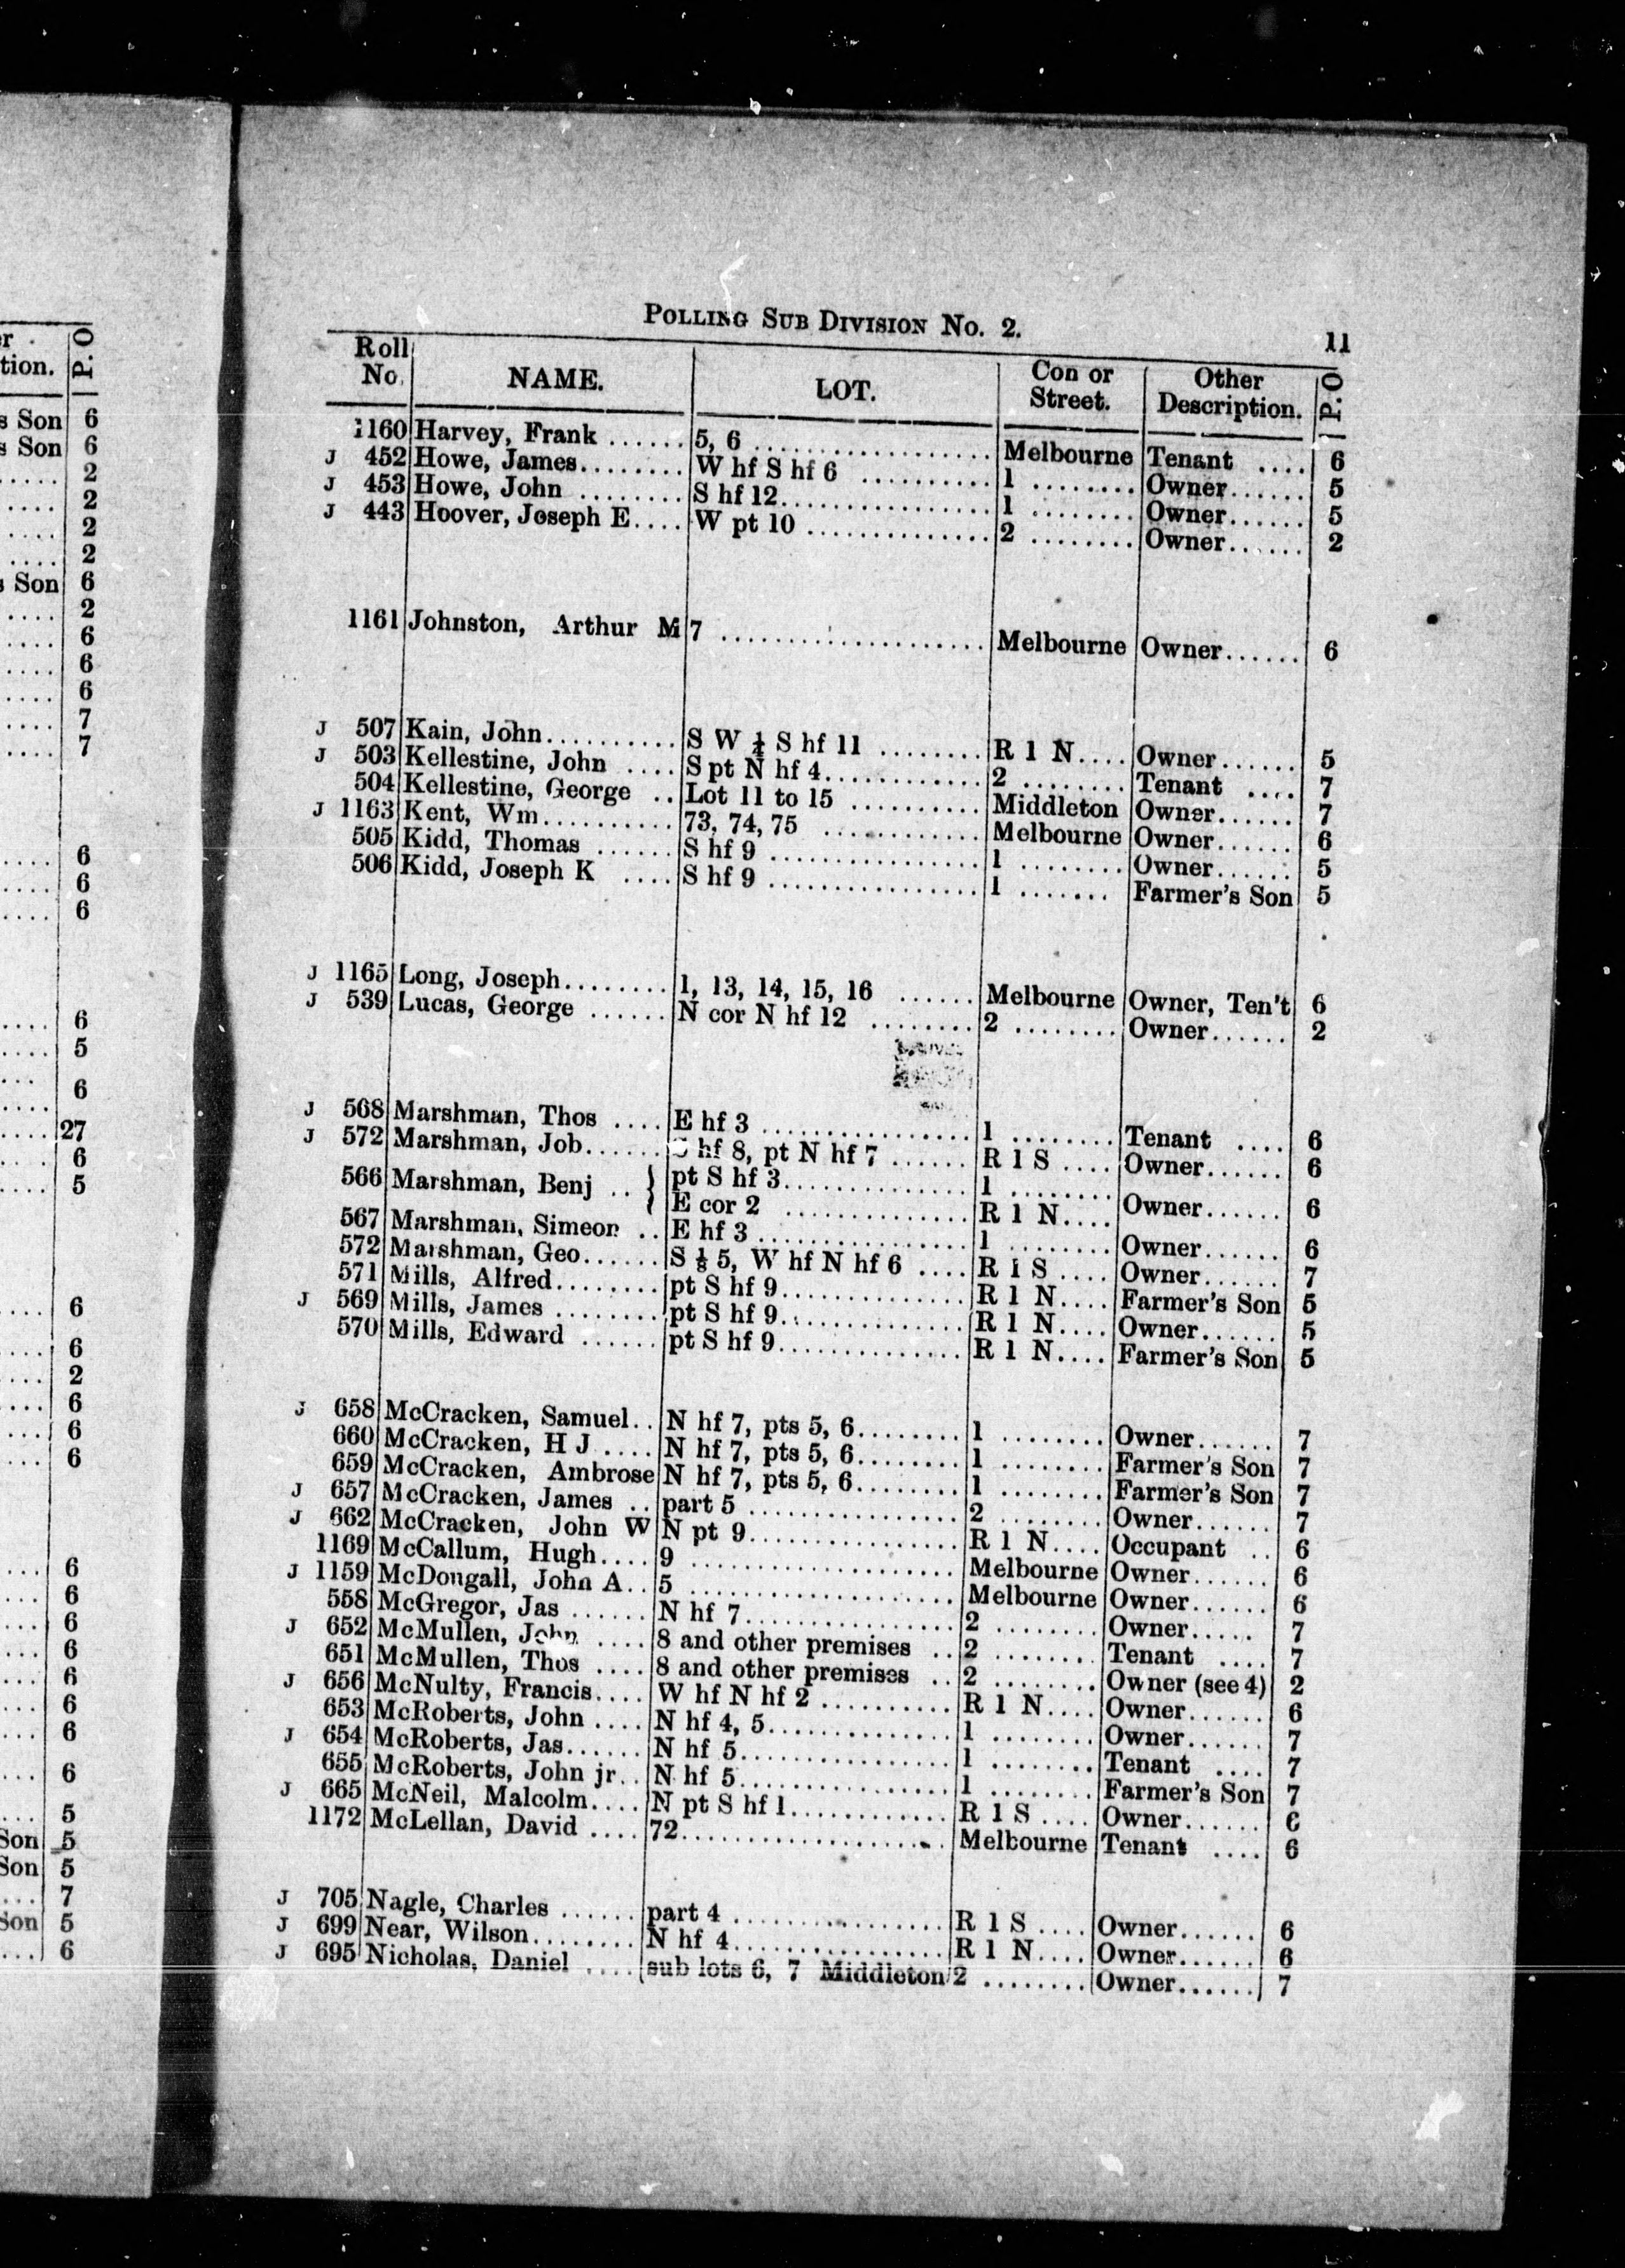 POLLING SUB DIVISION No. 2.
11
Roll No. NAME. LOT. Con or Street. Other Description. P. O
1160 Harvey, Frank ...... 5, 6 .................. Melbourne Tenant .... 6
J 452 Howe, James........ W hf S hf 6 .......... 1 ........ Owner...... 5
J 453 Howe, John ........ S hf 12................ 1 ........ Owner...... 5
J 443 Hoover, Joseph E.... W pt 10 .............. 2 ........ Owner...... 2
1161 Johnston, Arthur M 7 .................... Melbourne Owner...... 6
J 507 Kain, John.......... S W ¼ S hf 11 ........ R 1 N.... Owner...... 5
J 503 Kellestine, John .... S pt N hf 4............ 2 ........ Tenant .... 7
504 Kellestine, George .. Lot 11 to 15 .......... Middleton Owner...... 7
J 1163 Kent, Wm.......... 73, 74, 75 ............ Melbourne Owner...... 6
505 Kidd, Thomas ...... S hf 9 ................ 1 ........ Owner...... 5
506 Kidd, Joseph K .... S hf 9 ................ 1 ....... Farmer's Son 5
J 1165 Long, Joseph........ 1, 13, 14, 15, 16 ...... Melbourne Owner, Ten't 6
J 539 Lucas, George ...... N cor N hf 12 ........ 2 ........ Owner...... 2
J 568 Marshman, Thos .... E hf 3 ................ 1 ........ Tenant .... 6
J 572 Marshman, Job...... hf 8, pt N hf 7 ...... R 1 S .... Owner...... 6
566 Marshman, Benj .. { pt S hf 3.............. 1 ........ Owner...... 6
E cor 2 .............. R 1 N....
567 Marshman, Simeon .. E hf 3 ................ 1 ........ Owner...... 6
572 Marshman, Geo...... S ⅛ 5, W hf N hf 6 .... R 1 S .... Owner...... 7
571 Mills, Alfred........ pt S hf 9.............. R 1 N.... Farmer's Son 5
J 569 Mills, James ....... pt S hf 9.............. R 1 N.... Owner...... 5
570 Mills, Edward ...... pt S hf 9.............. R 1 N.... Farmer's Son 5
J 658 McCracken, Samuel.. N hf 7, pts 5, 6........ 1 ........ Owner...... 7
660 McCracken, H J .... N hf 7, pts 5, 6........ 1 ........ Farmer's Son 7
659 McCracken, Ambrose N hf 7, pts 5, 6........ 1 ........ Farmer's Son 7
J 657 McCracken, James .. part 5 ................ 2 ........ Owner...... 7
J 662 McCracken, John W N pt 9................ R 1 N.... Occupant .. 6
1169 McCallum, Hugh.... 9 .................... Melbourne Owner...... 6
J 1159 McDougall, John A.. 5 .................... Melbourne Owner...... 6
558 McGregor, Jas ...... N hf 7................ 2 ........ Owner..... 7
J 652 McMullen, John .... 8 and other premises .. 2 ........ Tenant .... 7
651 McMullen, Thos .... 8 and other premises .. 2 ........ Owner (see 4) 2
J 656 McNulty, Francis.... W hf N hf 2 .......... R 1 N.... Owner...... 6
653 McRoberts, John .... N hf 4, 5.............. 1 ........ Owner...... 7
J 654 McRoberts, Jas...... N hf 5................ 1 ........ Tenant .... 7
655 McRoberts, John jr.. N hf 5................ 1 ........ Farmer's Son 7
J 665 McNeil, Malcolm.... N pt S hf 1............ R 1 S .... Owner...... 6
1172 McLellan, David .... 72.................... Melbourne Tenant .... 6
J 705 Nagle, Charles ...... part 4 ................ R 1 S .... Owner...... 6
J 699 Near, Wilson........ N hf 4................ R 1 N.... Owner...... 6
J 695 Nicholas, Daniel .... sub lots 6, 7 Middleton 2 ........ Owner...... 7